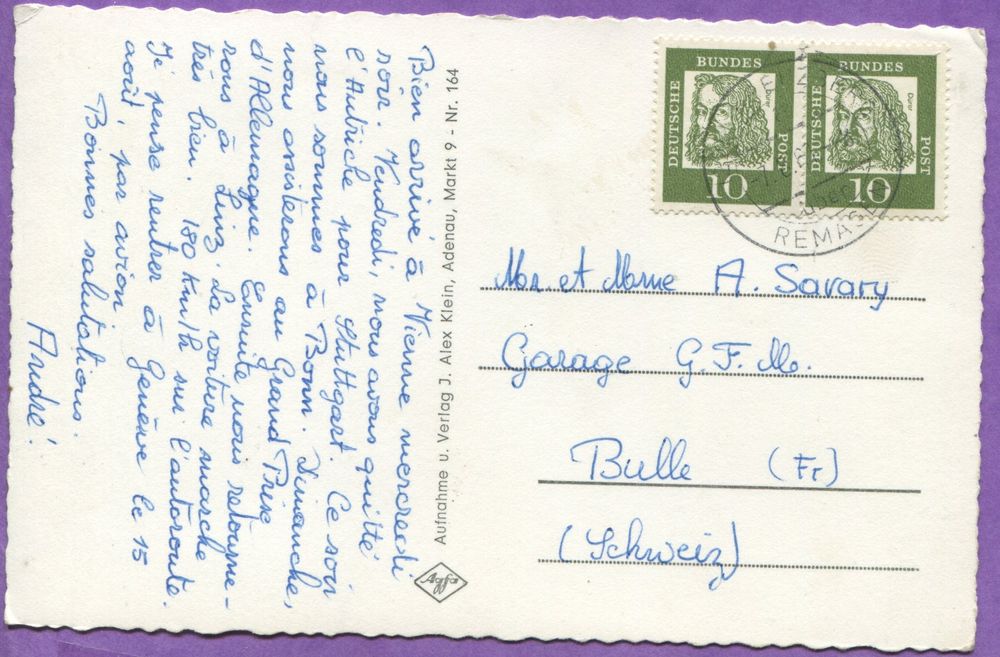 Bien arrivé à Vienne mercredi
soir. Vendredi, nous avons quitté
l'Autriche pour Stuttgart. Ce soir
nous sommes à Bonn. Dimanche,
nous assisterons au Grand Prix
d'Allemagne. Ensuite nous retourne-
rons à Linz. La voiture marche
très bien. 180 km/h sur l'autoroute.
Je pense rentrer à Genève le 15
août, par avion
Bonnes salutations.
André!
Aufnahme u. Verlag J. Alex Klein, Adenau, Markt 9 - Nr. 164
Agfa
DEUTSCHE BUNDES POST
Dürer
10
DEUTSCHE BUNDES POST
Dürer
10
REMAG
Mr. et Mme A. Savary
Garage G.F.M.
Bulle (Fr)
(Schweiz)